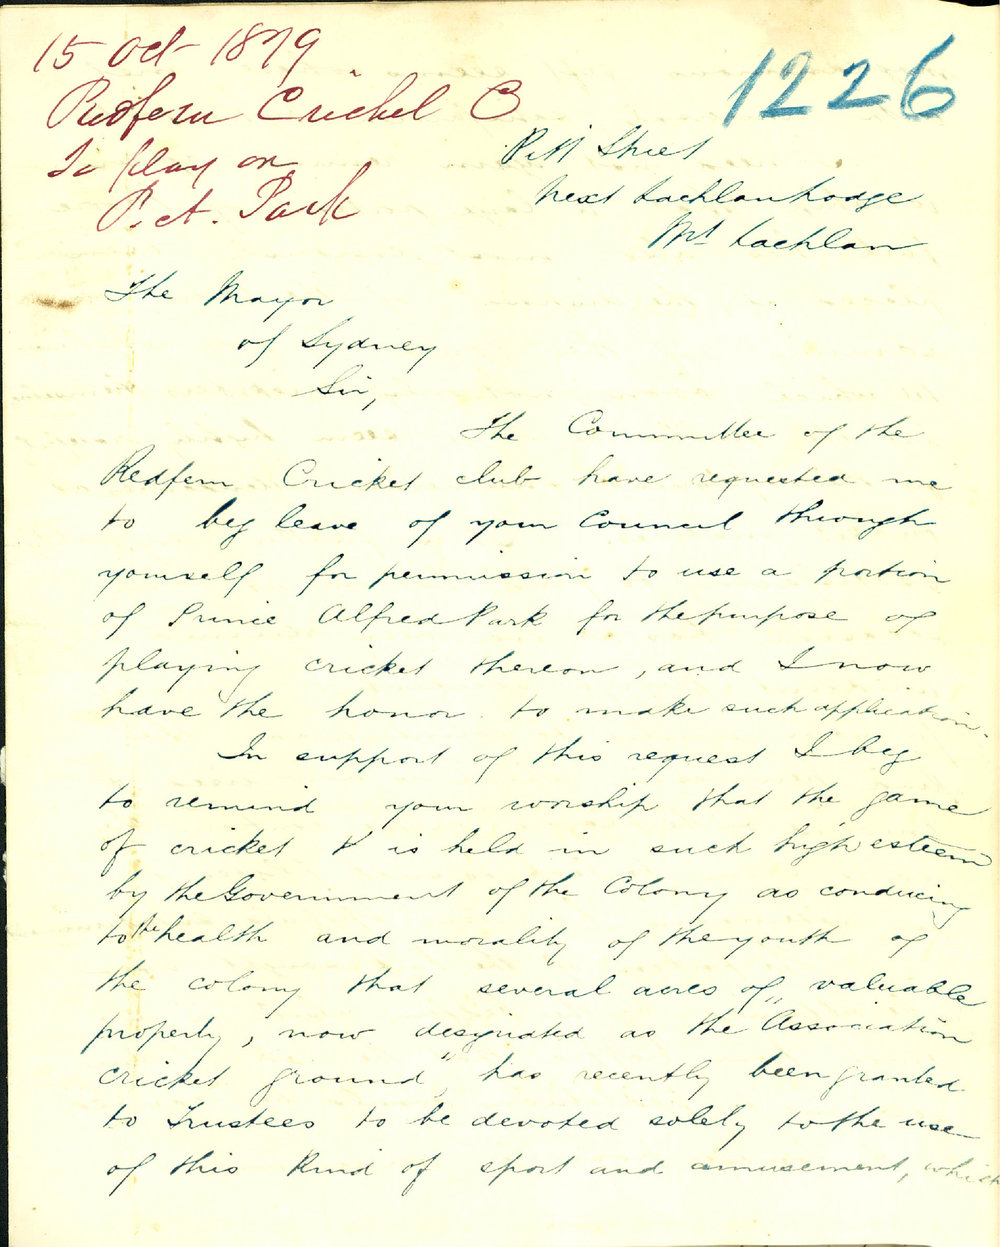 15 Oct 1879
Redfern Cricket C
To play on
P. A. Park
1226
Pitt Street
next Lachlan Lodge
Mt Lachlan
The Mayor
of Sydney
Sir,
The Committee of the
Redfern Cricket club have requested me
to beg leave of your Council through
yourself for permission to use a portion
of Prince Alfred Park for the purpose of
playing cricket thereon, and I now
have the honor to make such application.
In support of this request I beg
to remind your worship that the game
of cricket is held in such high esteem
by the Government of the Colony as conducing
to the health and morality of the youth of
the colony that several acres of valuable
property, now designated as the "Association
cricket ground" has recently been granted
to Trustees to be devoted solely to the use
of this kind of sport and amusement, which